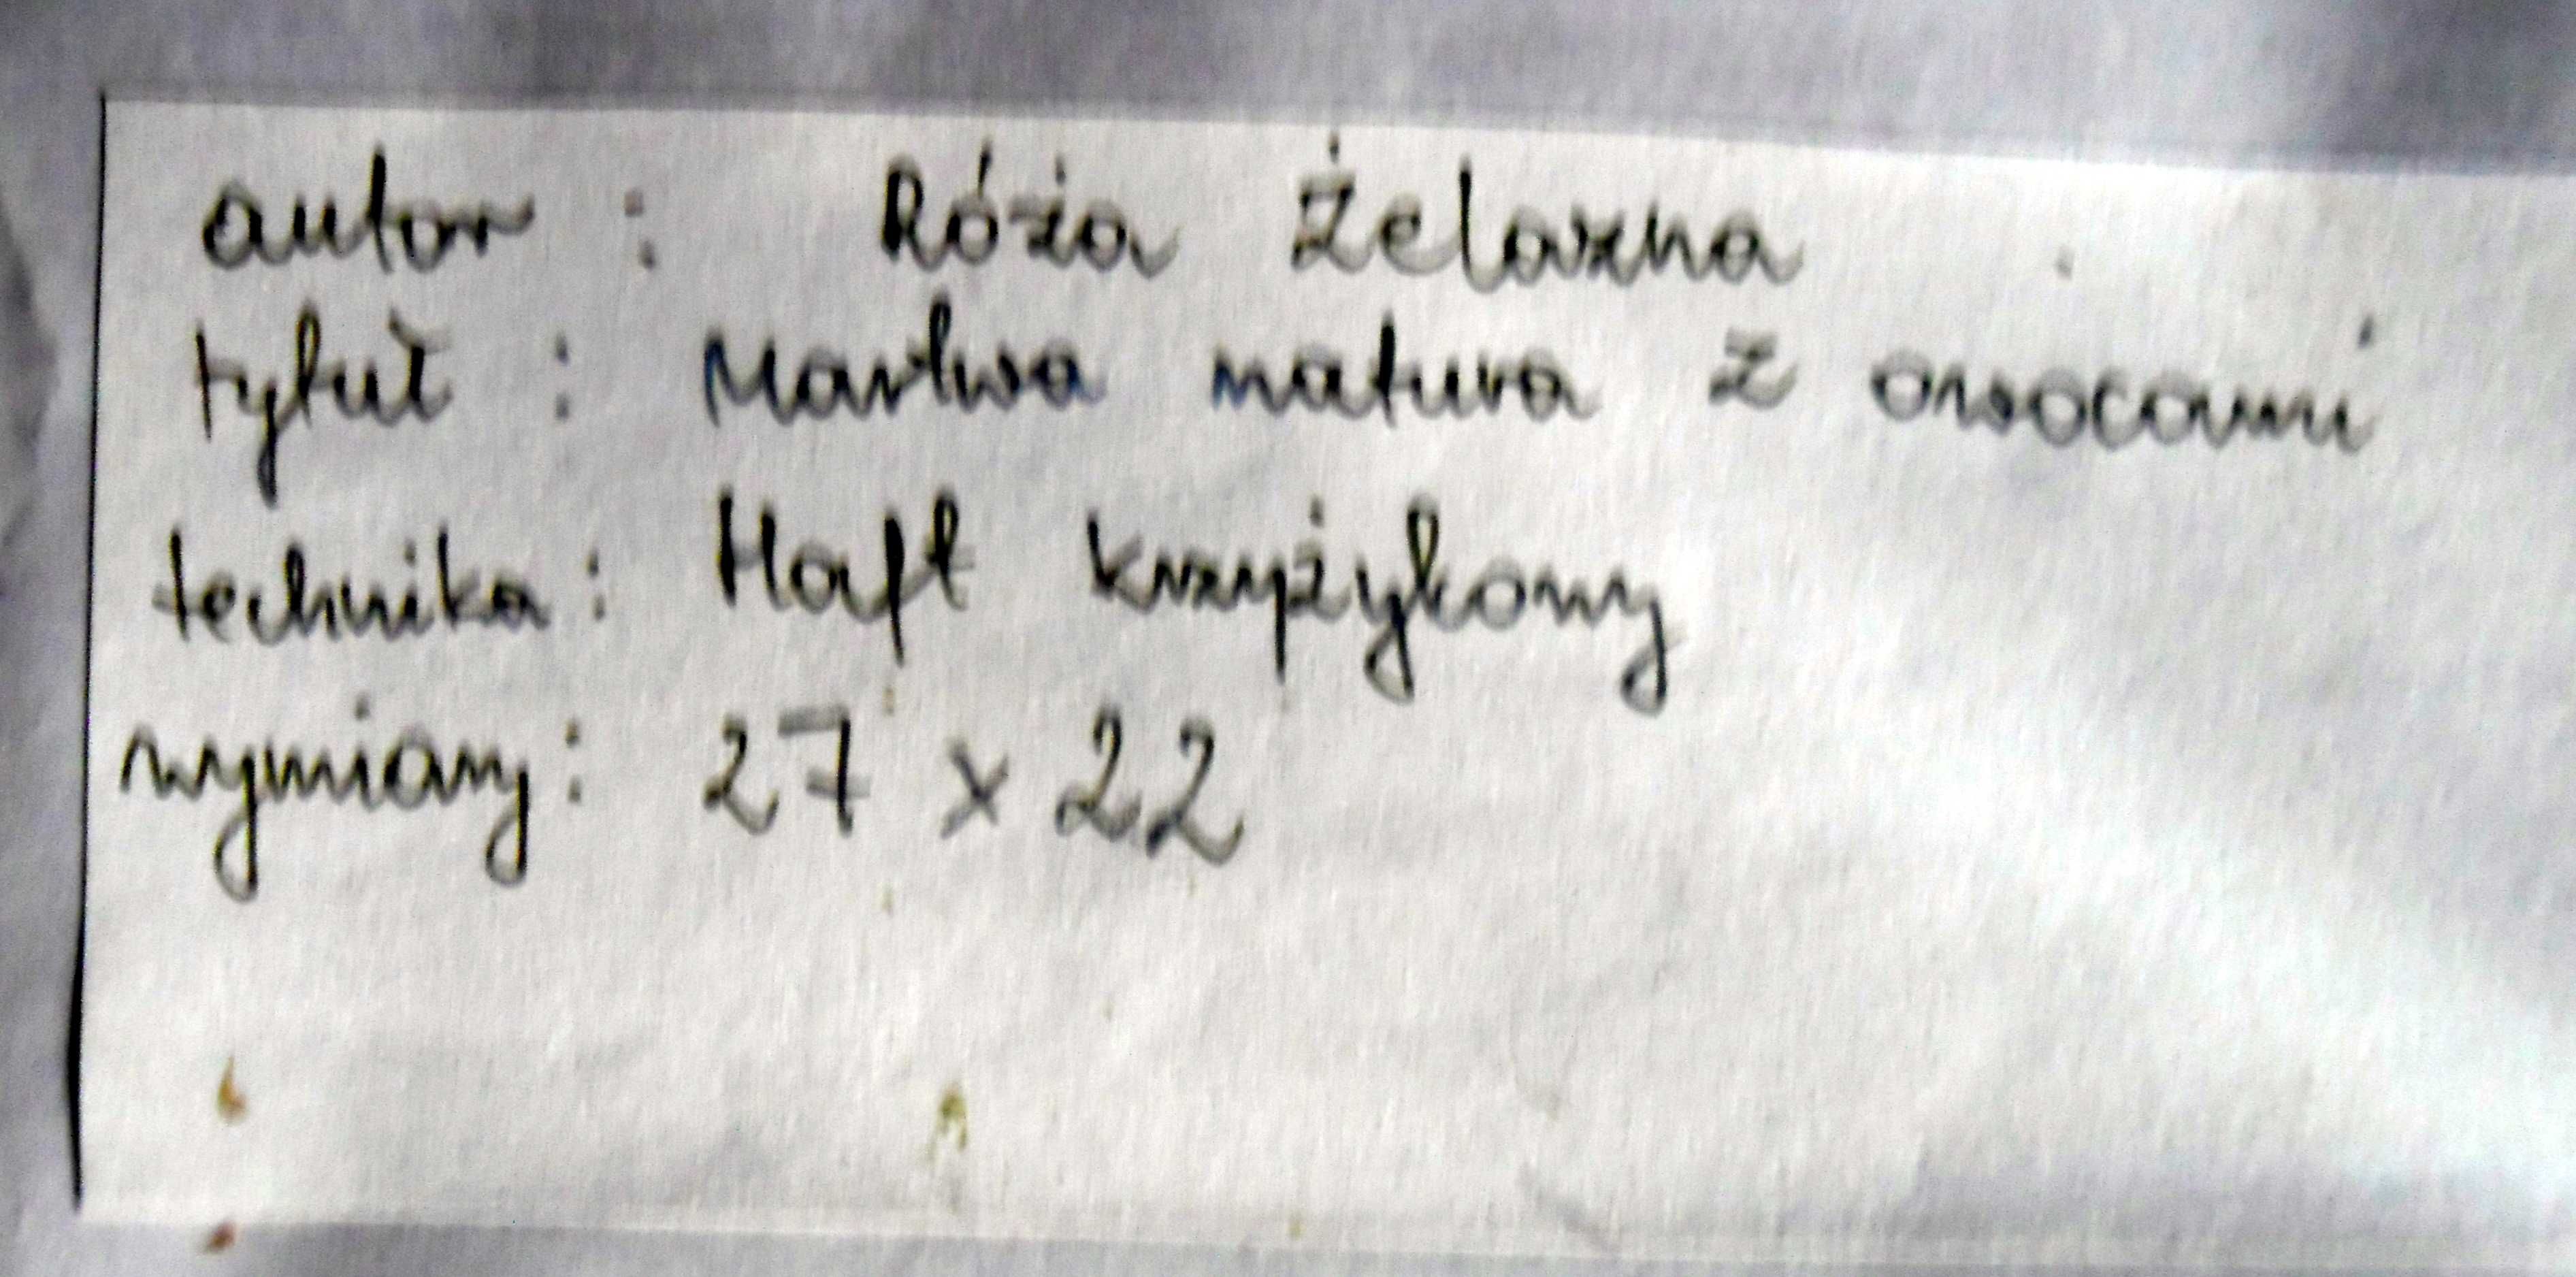 autor : Róża Żelazna
tytuł : Martwa natura z owocami
technika : Haft krzyżykowy
wymiary : 27 x 22